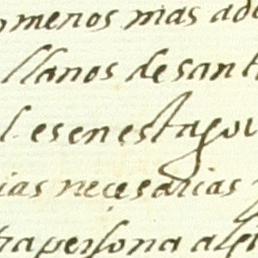 omenos mas ado
llanos de sant
l. es en esta gou
ias neçesarias
tra persona alg